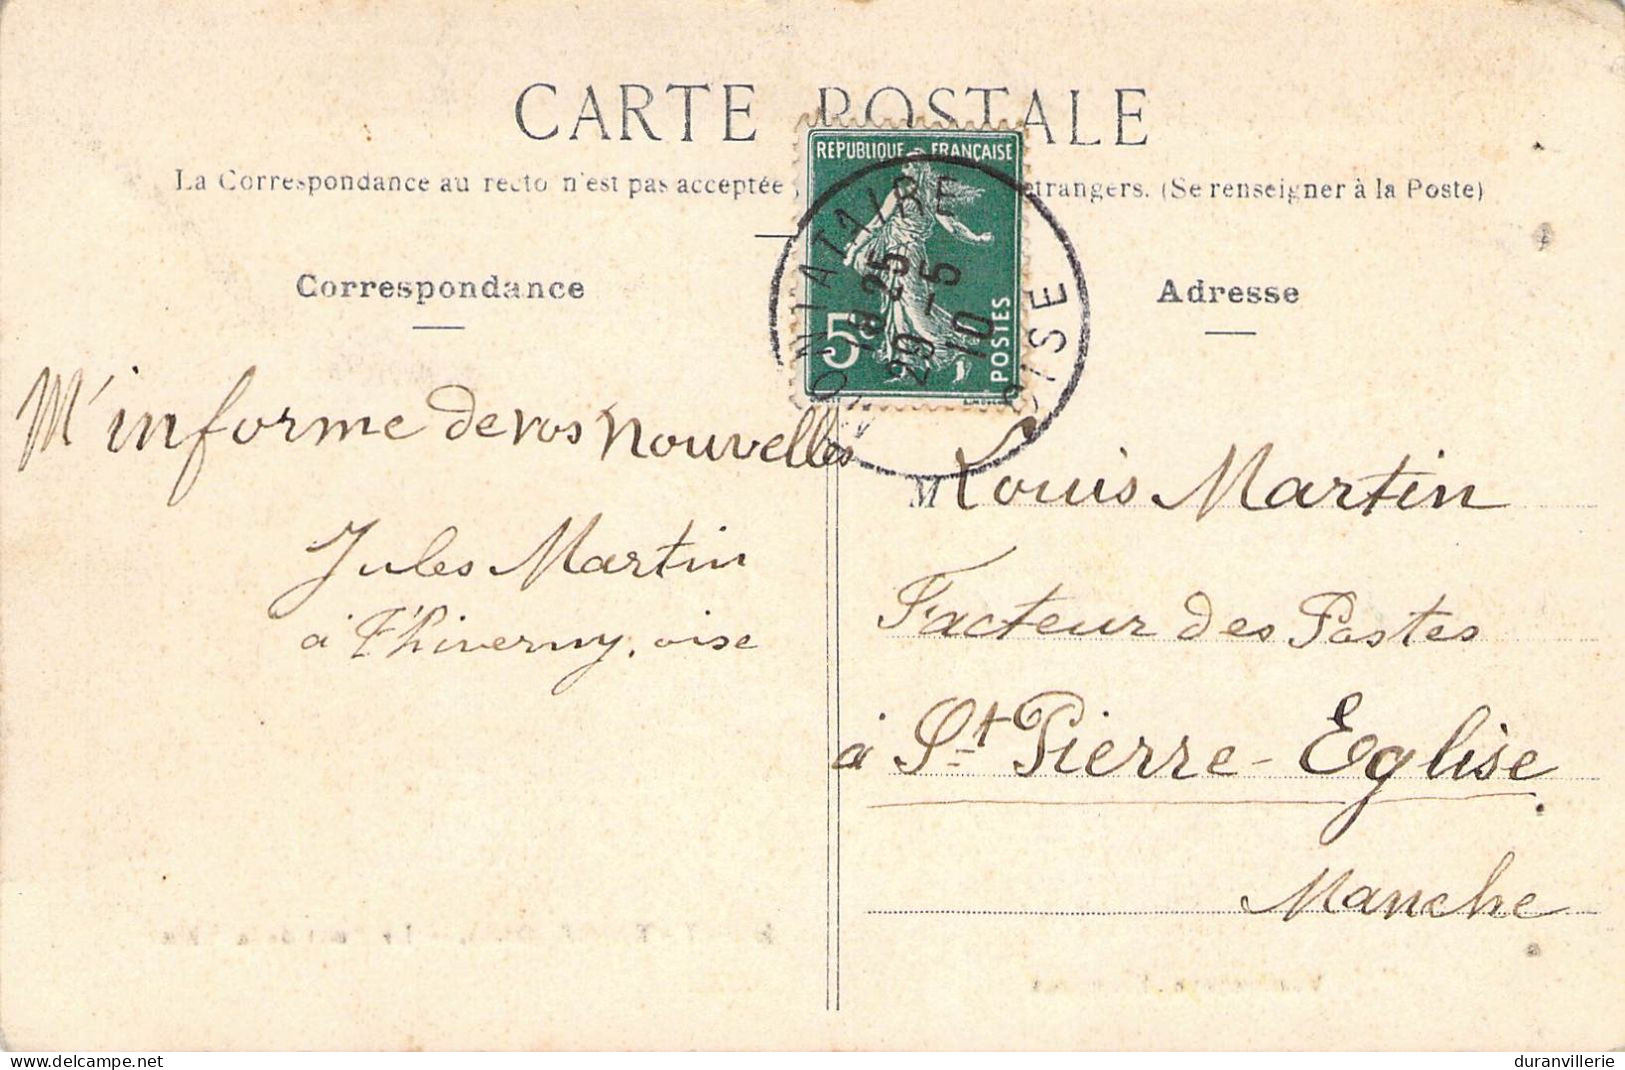 CARTE POSTALE
La Correspondance au recto n'est pas acceptée étrangers. (Se renseigner à la Poste)
REPUBLIQUE FRANÇAISE
5c
POSTES
MONTATAIRE
18 25
29 -5
10
OISE
Correspondance
Adresse
M'informe de vos nouvelles
Jules Martin
à Thiverny, oise
M Louis Martin
Facteur des Postes
à St Pierre-Eglise
Manche
delcampe.net
duranvillerie